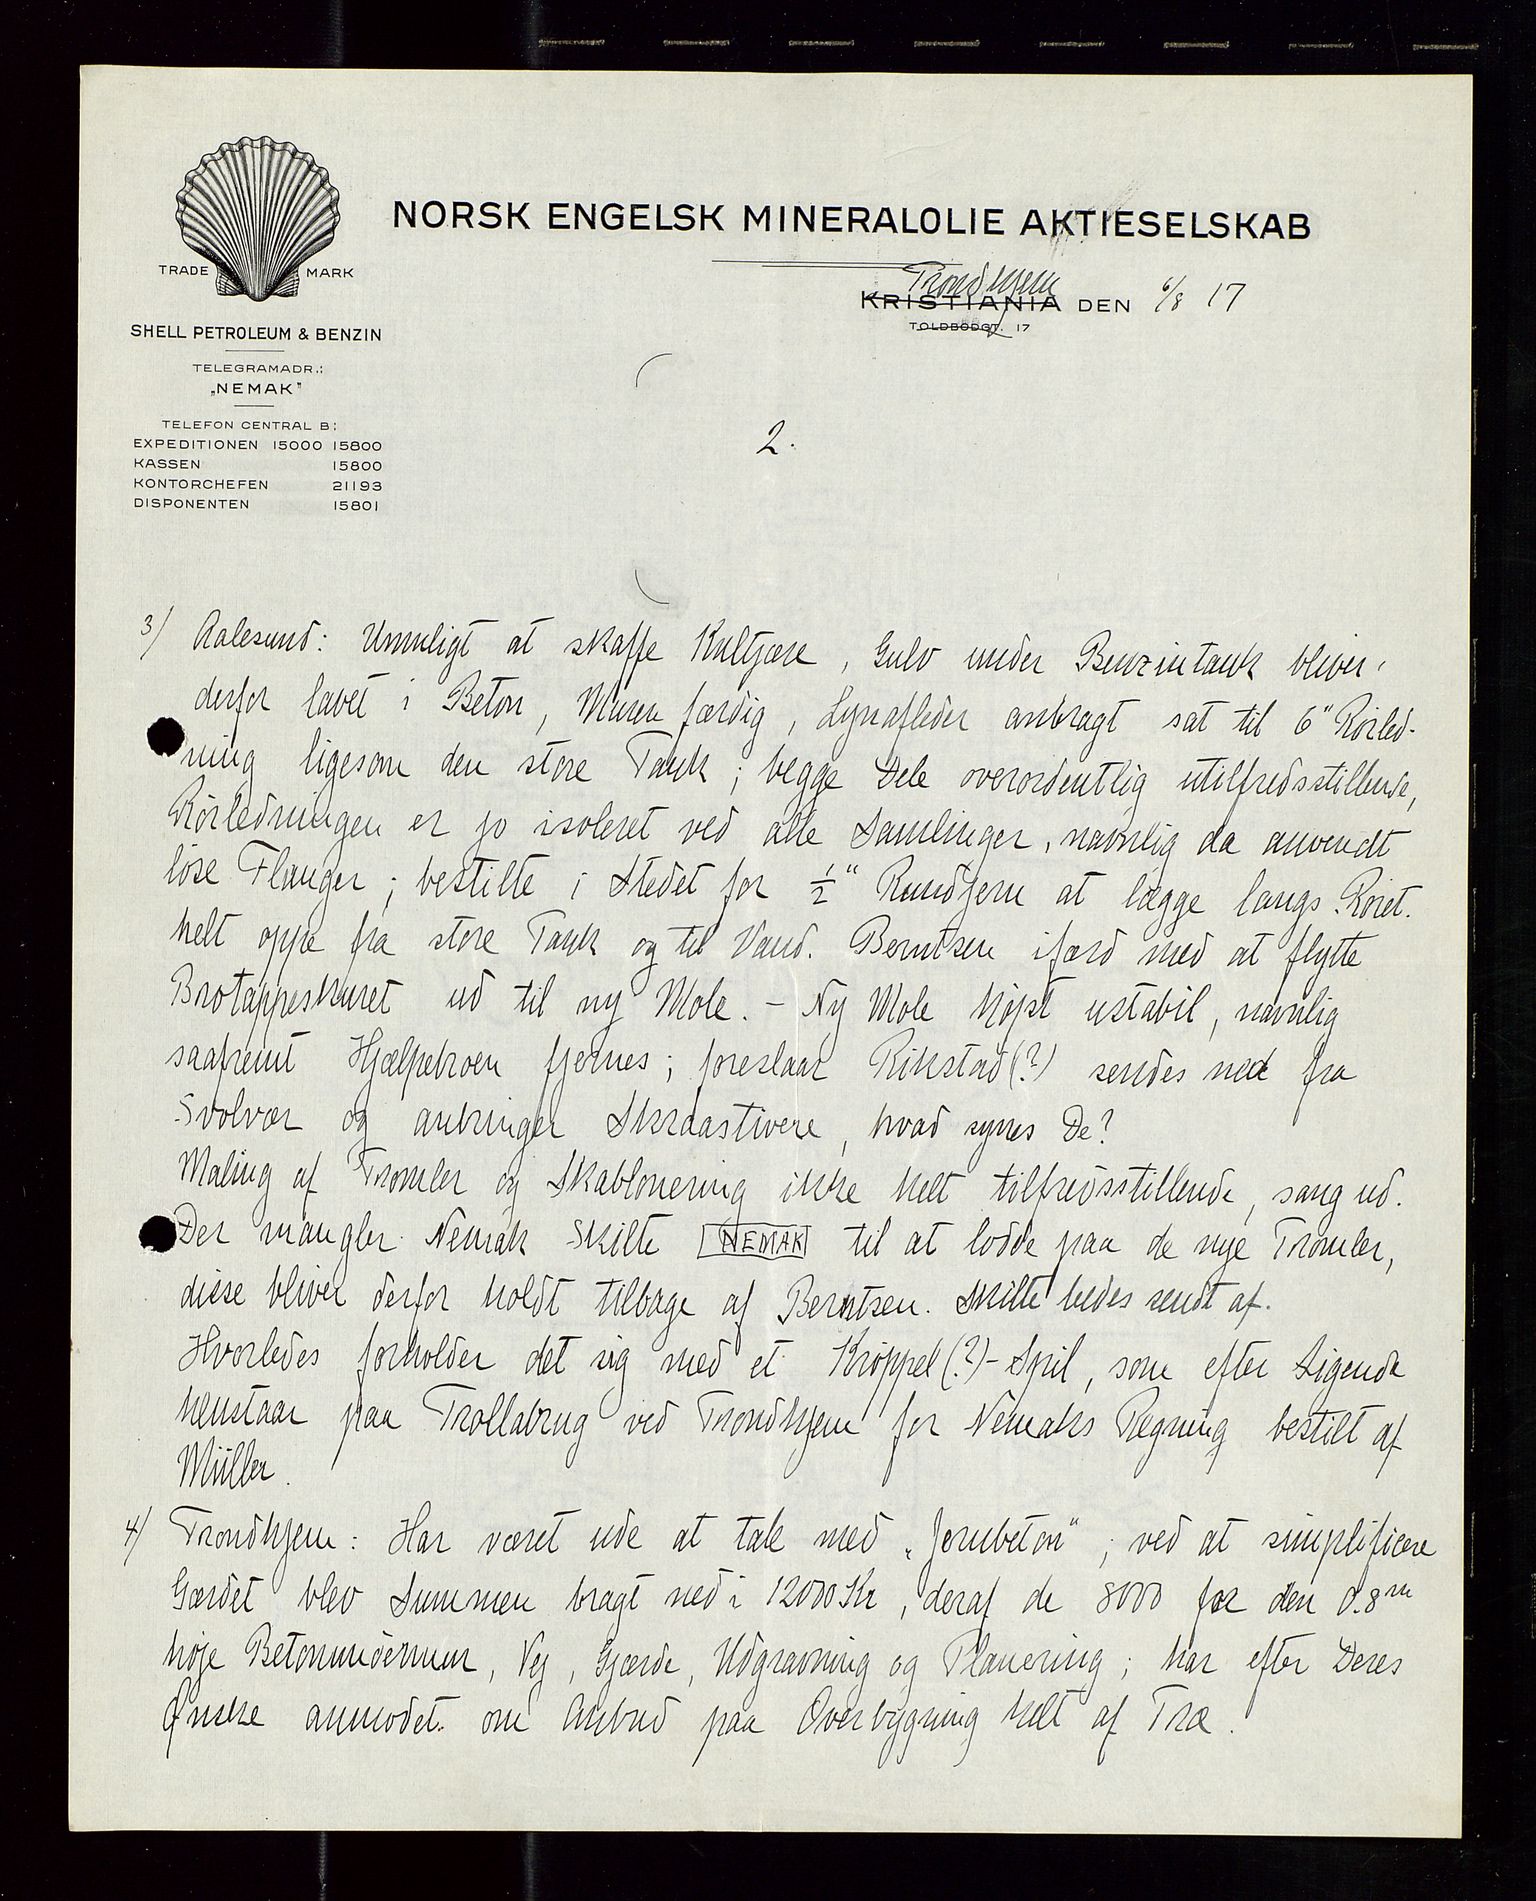 NORSK ENGELSK MINERALOLIE AKTIESELSKAB
TRADE MARK
Trondhjem
KRISTIANIA DEN 6/8 17
TOLDBODGT. 17
SHELL PETROLEUM & BENZIN
TELEGRAMADR.:
„NEMAK”
TELEFON CENTRAL B:
EXPEDITIONEN 15000 15800
KASSEN 15800
KONTORCHEFEN 21193
DISPONENTEN 15801
2.
3/ Aalesund: Umuligt at skaffe Kultjære, Gulv under Benzintank bliver
derfor lavet i Beton, Muren færdig, Lynafleder anbragt sat til 6" Rörled-
ning ligesom den store Tank; begge Dele overordentlig utilfredsstillende,
Rörledningen er jo isoleret ved alle Samlinger, navnlig da anvendt
löse Flanger; bestilte i Stedet for 1/2" Rundjern at lægge langs Röret.
helt oppe fra store Tank og til Vand. Berntsen ifærd med at flytte
Brotappeskuret ud til ny Mole. - Ny Mole højst ustabil, navnlig
saafremt Hjælpebroen fjernes; foreslaar Rikstad(?) sendes ned fra
Svolvær og anbringer Skraastivere, hvad synes De?
Maling af Tromler og Skablonering ikke helt tilfredsstillende, saa ud.
Der mangler Nemak Skilte NEMAK til at lodde paa de nye Tromler,
disse bliver derfor holdt tilbage af Berntsen. Skilte bedes sendt af.
Hvorledes forholder det sig med et Kröppel(?)-Spil, som efter Sigende
henstaar paa Trollabrug ved Trondhjem for Nemaks Regning bestilt af
Müller.
4/ Trondhjem: Har været ude at tale med „Jernbeton", ved at simplificere
Gærdet blev Summen bragt ned i 12000 Kr, deraf de 8000 for den 0.8 m
høje Betonmur, Vej, Gjærde, Udgravning og Planering; har efter Deres
Ønske anmodet om Anbud paa Overbygning helt af Træ.